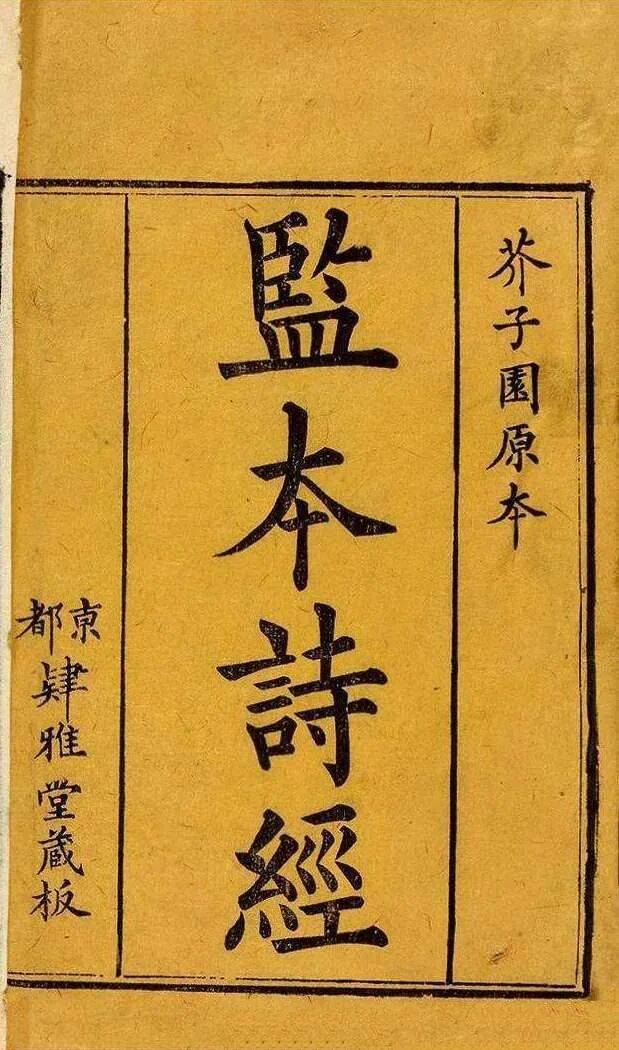 芥子園原本
監本詩經
京都
肄雅堂蔵板